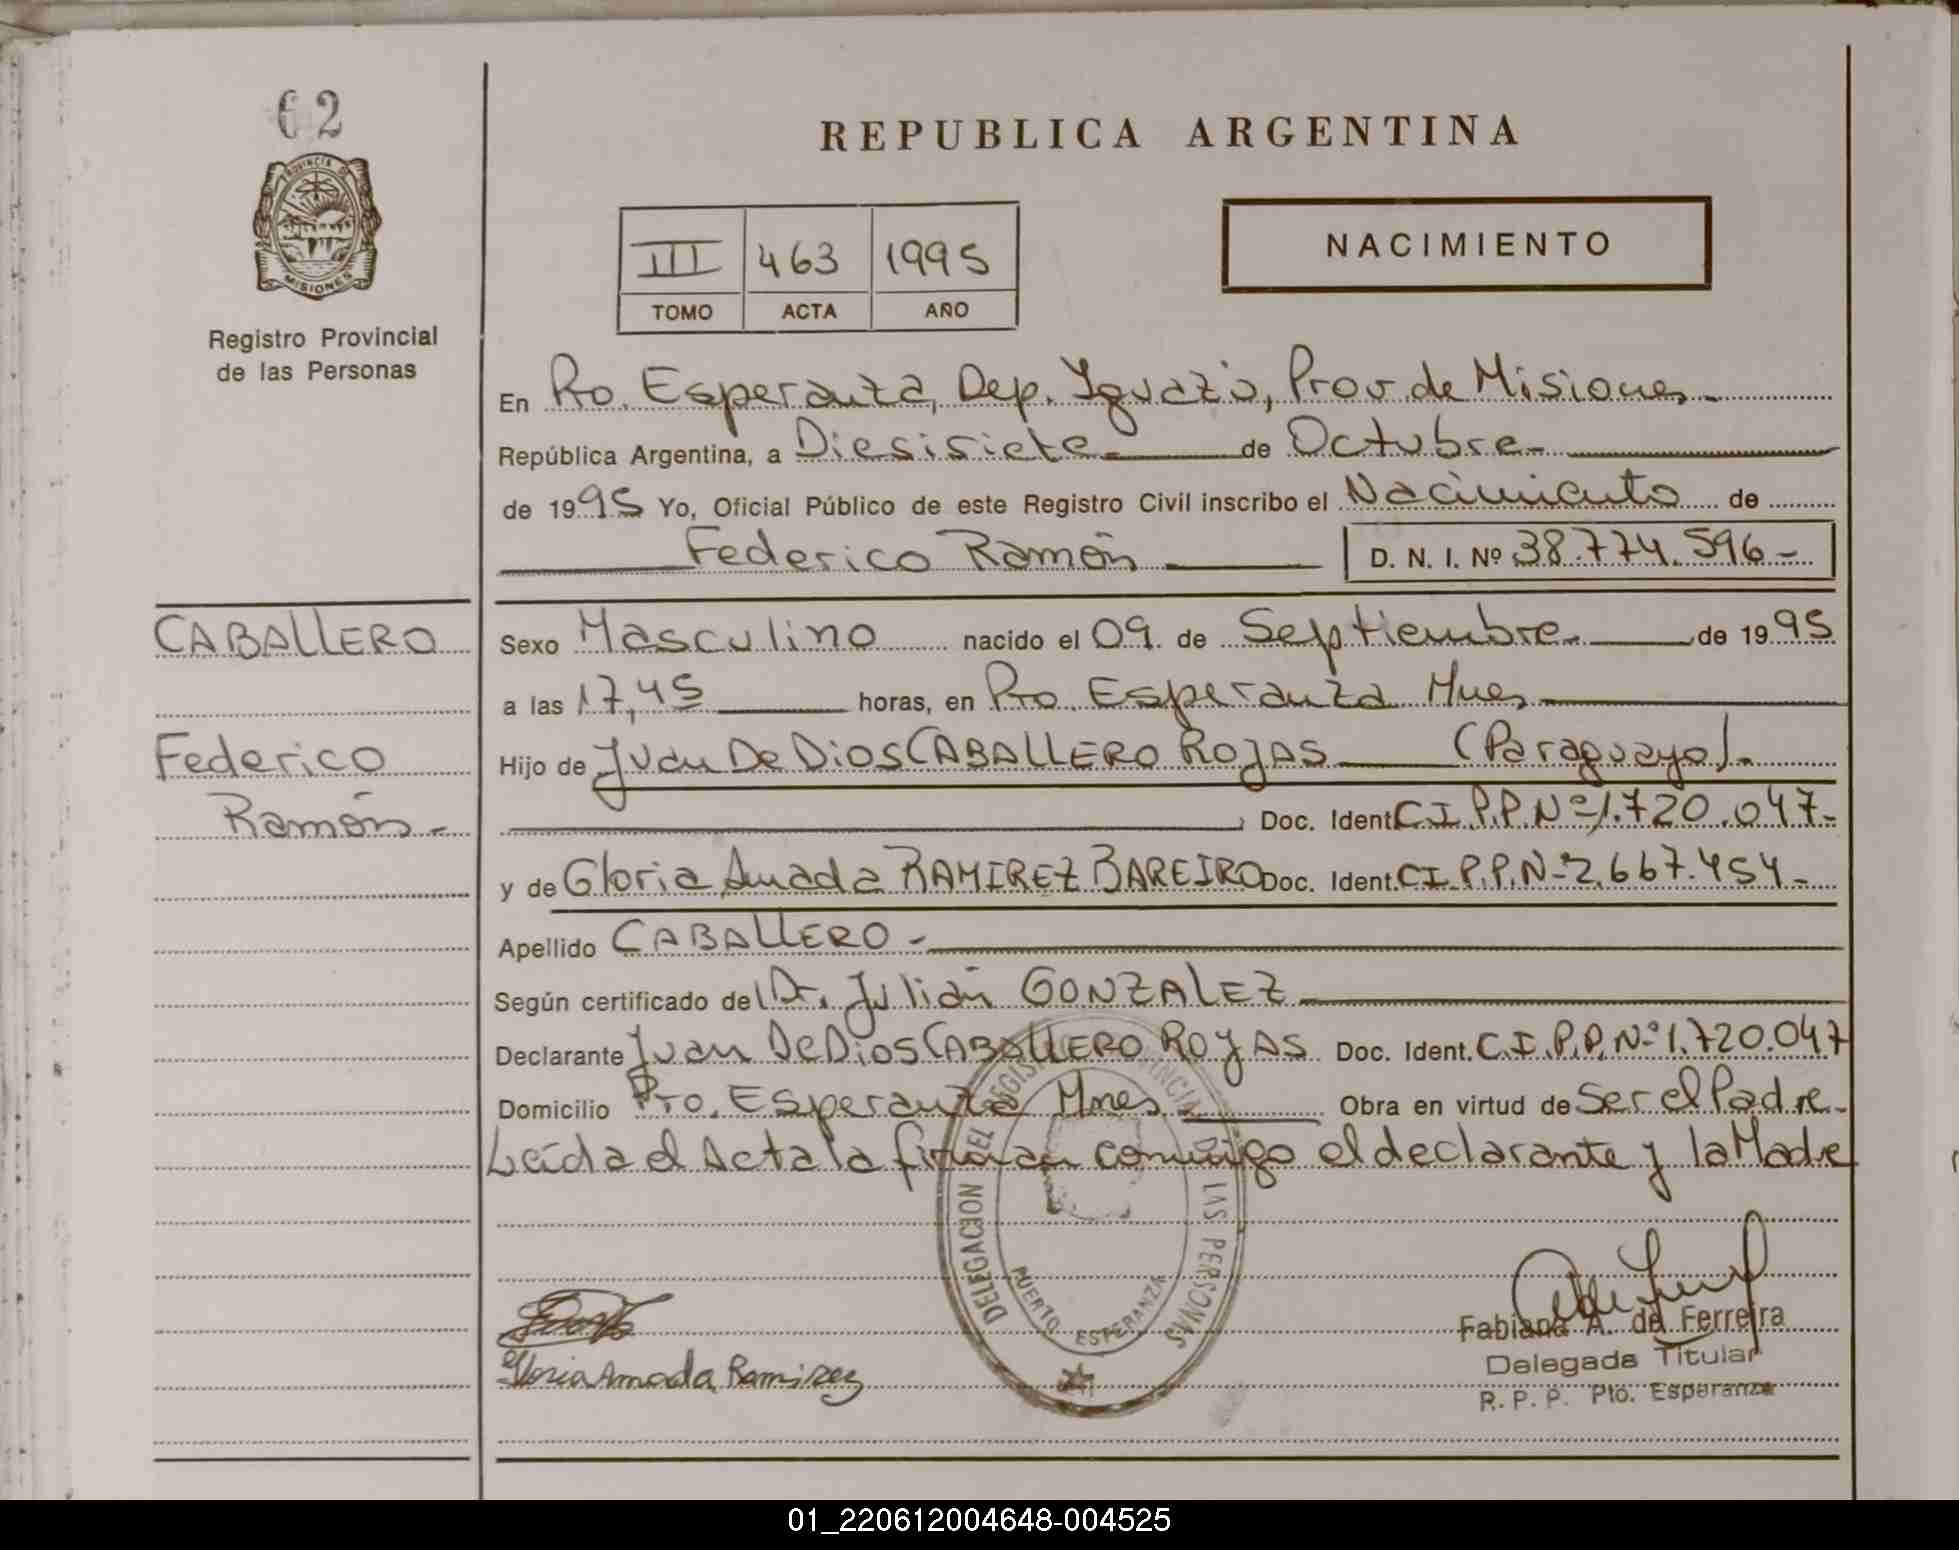 62
PROVINCIA DE
MISIONES
Registro Provincial
de las Personas
REPUBLICA ARGENTINA
III 463 1995
TOMO ACTA AÑO
NACIMIENTO
En Pto. Esperanza, Dep. Iguazú, Prov. de Misiones
República Argentina, a Diesisiete de Octubre
de 1995 Yo, Oficial Público de este Registro Civil inscribo el Nacimiento de
Federico Ramón D. N. I. Nº 38.774.596-
CABALLERO
Federico
Ramón-
Sexo Masculino nacido el 09 de Septiembre de 1995
a las 17,45 horas, en Pto. Esperanza Mnes
Hijo de Juan De Dios CABALLERO ROJAS (Paraguayo).
Doc. Ident. C.I.P.P. Nº 1.720.047-
y de Gloria Amada RAMIREZ BAREIRO Doc. Ident. C.I.P.P. Nº 2.667.454-
Apellido CABALLERO-
Según certificado del Dr. Julián GONZALEZ
Declarante Juan De Dios CABALLERO ROYAS Doc. Ident. C.I.P.P. Nº 1.720.047
Domicilio Pto. Esperanza Mnes Obra en virtud de Ser el Padre-
Leída el Acta la firman conmigo el declarante y la Madre
DELEGACION DEL REGISTRO PROVINCIAL LAS PERSONAS
PUERTO ESPERANZA
Gloria Amada Ramirez
Fabiana A. de Ferreira
Delegada Titular
R. P. P. Pto. Esperanza
01_220612004648-004525